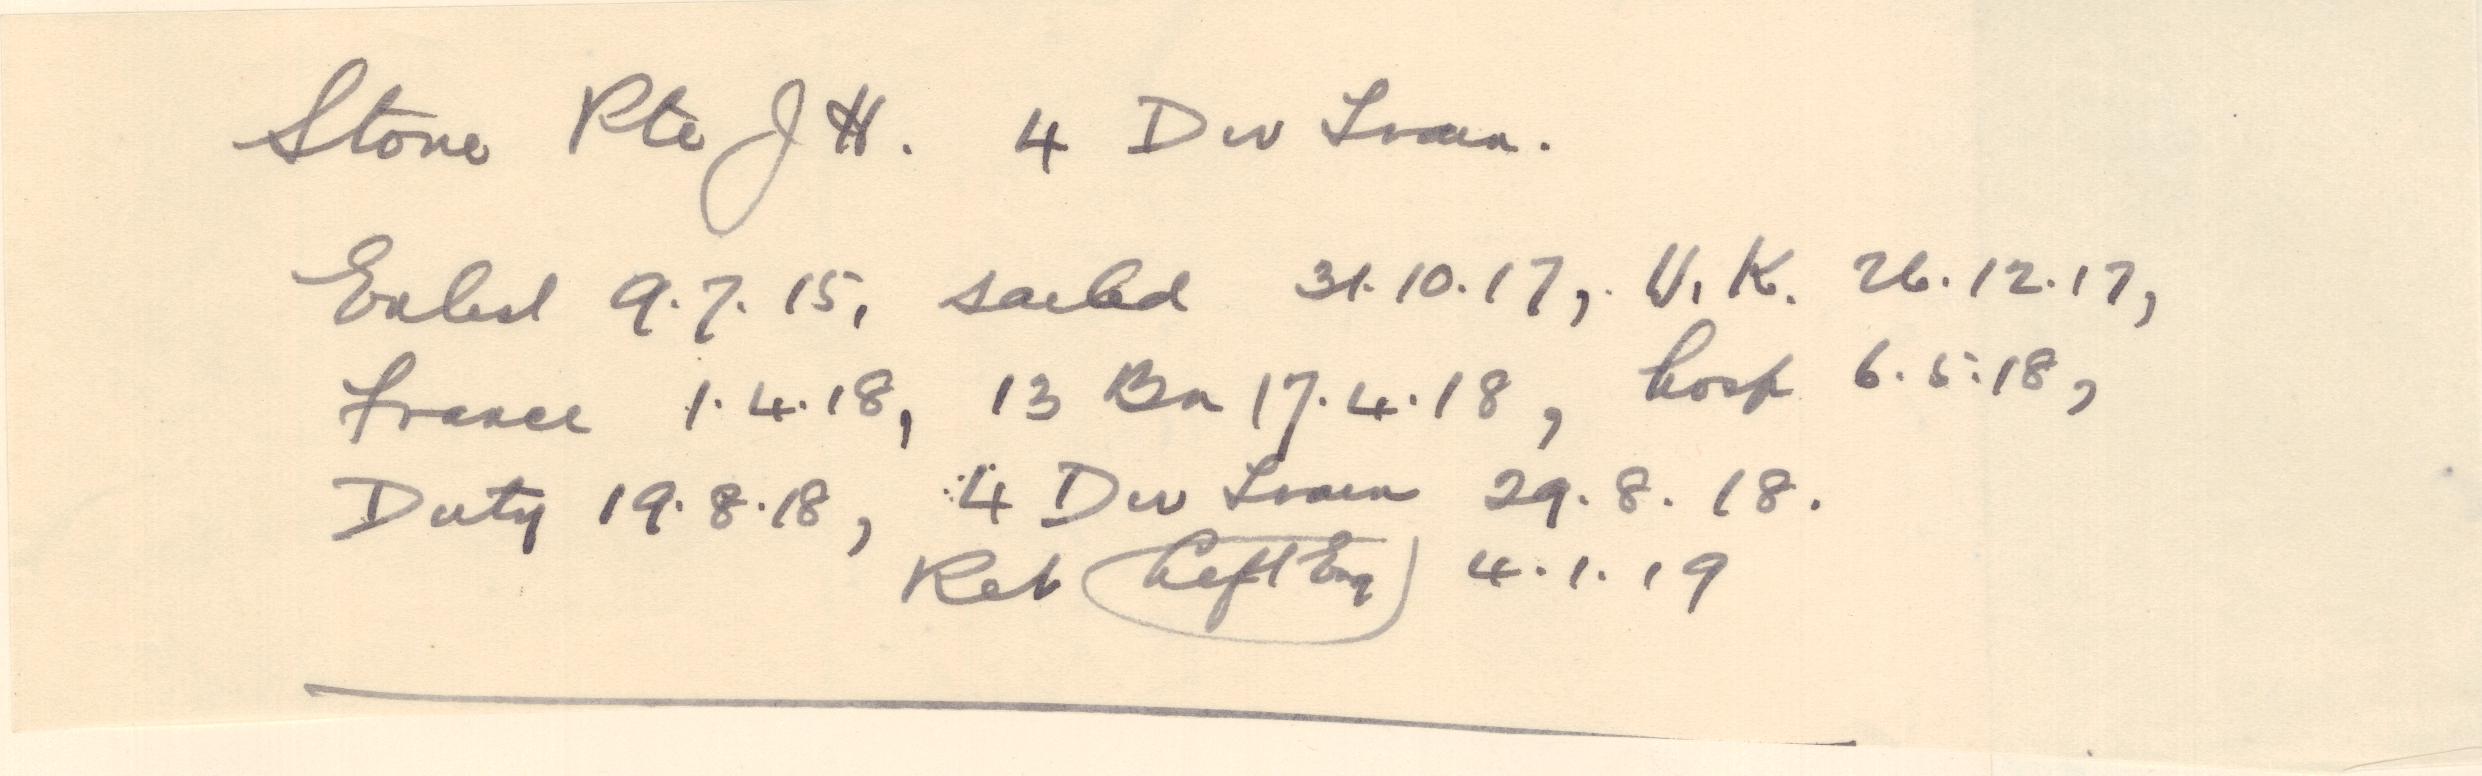 Stone Pte J H. 4 Div Train.
Enlist 9.7.15, sailed 31.10.17, U.K. 26.12.17,
France 1.4.18, 13 Bn 17.4.18, hosp 6.5.18,
Duty 19.8.18, 4 Div Train 29.8.18.
Ret (Left Eng) 4.1.19